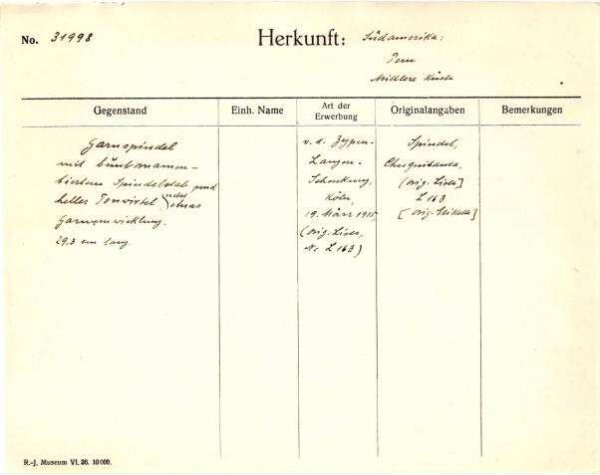 No. 31998
Herkunft: Südamerika:
Peru
Mittlere Küste
Gegenstand
Einh. Name
Art der
Erwerbung
Originalangaben
Bemerkungen
Garnspindel
mit buntornamen-
tiertem Spindelstab und
helles Tonwirtel nebst etwas
Garnumwicklung.
29.3 cm lang.
v. d. Zypen-
Langen-
Schenkung,
Köln,
19. März 1915
(orig. Liste,
Nr. L 163)
Spindel,
(orig. Liste]
L 163
[orig.
R.-J. Museum VI. 26. 10000.